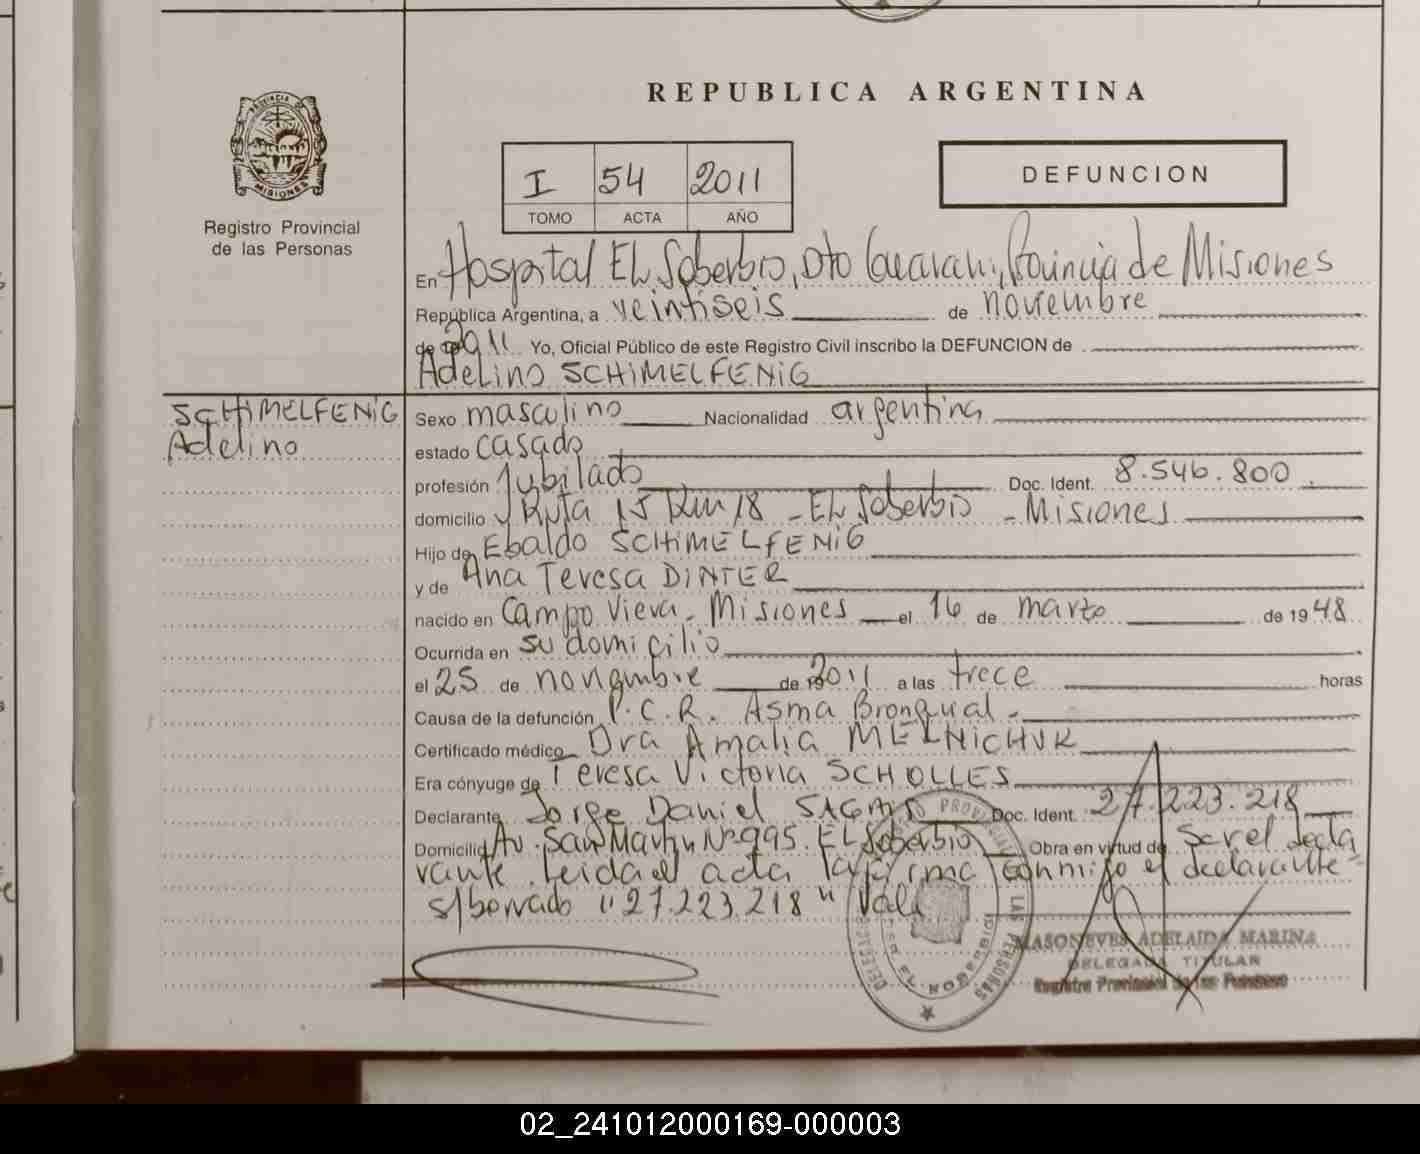 REPUBLICA ARGENTINA
PROVINCIA DE MISIONES
Registro Provincial
de las Personas
I 54 2011
TOMO ACTA AÑO
DEFUNCION
En Hospital EL Soberbio, Dto Guarani, Provincia de Misiones
República Argentina, a veintiseis de noviembre
de 2011 Yo, Oficial Público de este Registro Civil inscribo la DEFUNCION de
Adelino SCHIMELFENIG
SCHIMELFENIG
Adelino
Sexo masculino Nacionalidad argentina
estado casado
profesión Jubilado Doc. Ident. 8.546.800
domicilio Ruta 15 Km 18 - EL Soberbio - Misiones
Hijo de Ebaldo SCHIMELFENIG
y de Ana Teresa DINTER
nacido en Campo Viera - Misiones el 16 de marzo de 1948
Ocurrida en su domicilio
el 25 de noviembre de 2011 a las trece horas
Causa de la defunción P.C.R. Asma Bronquial -
Certificado médico Dra Amalia MELNICHUK
Era cónyuge de Teresa Victoria SCHOLLES
Declarante Jorge Daniel Doc. Ident. 27.223.218
Domicilio Av. San Martin Nº 995. EL Soberbio Obra en virtud de Ser el decla
rante. Leida el acta la firma conmigo el declarante
s/borrado "27.223.218" Vale
MASONEVES ADELAIDA MARINA
DELEGADA TITULAR
Registro Provincial de las Personas
02_241012000169-000003